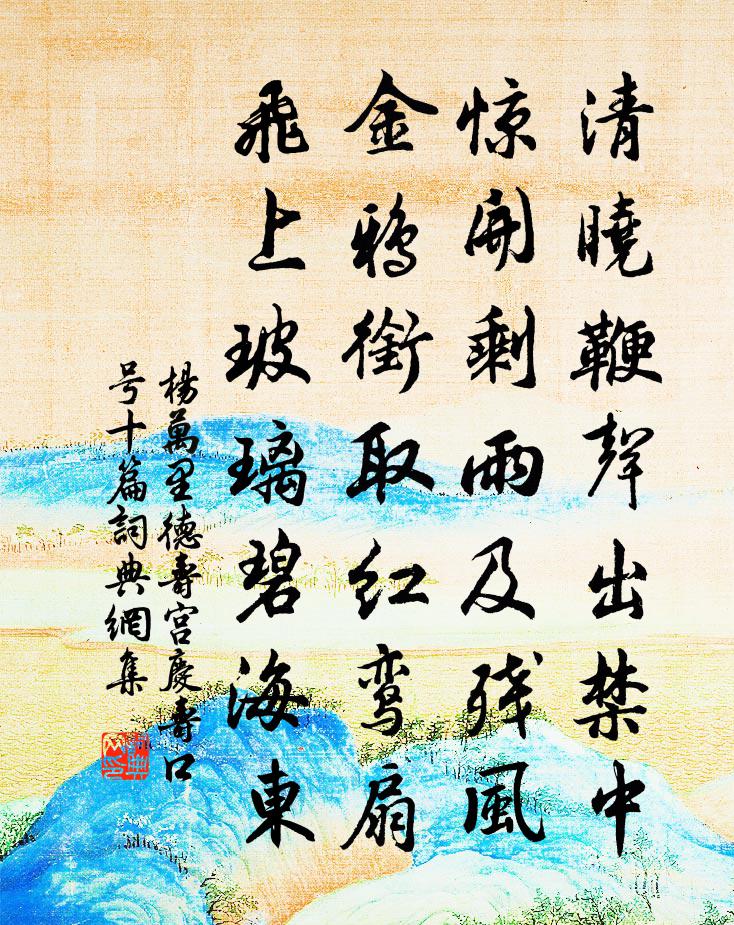 清曉鞭聲出禁中
惊開剩雨及残風
金鴉銜取红鸾扇
飛上玻璃碧海東
楊萬里德壽宮慶壽口
号十篇詞典網集